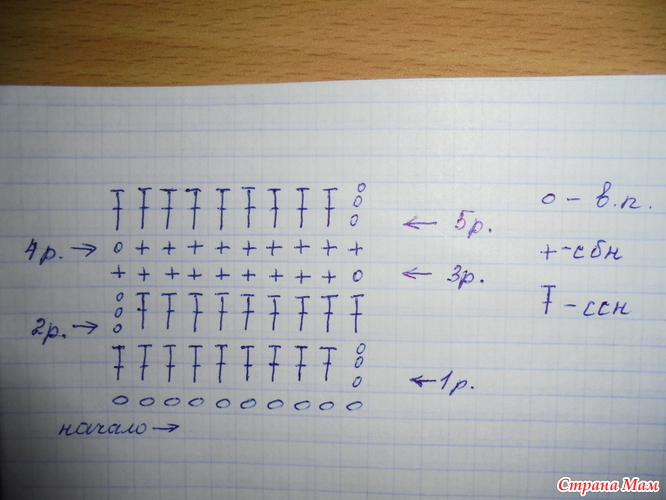 о - в.п.
← 5р.
4р. →
+ - сбн
← 3р.
- ссн
2р. →
← 1р.
начало →
Страна Мам